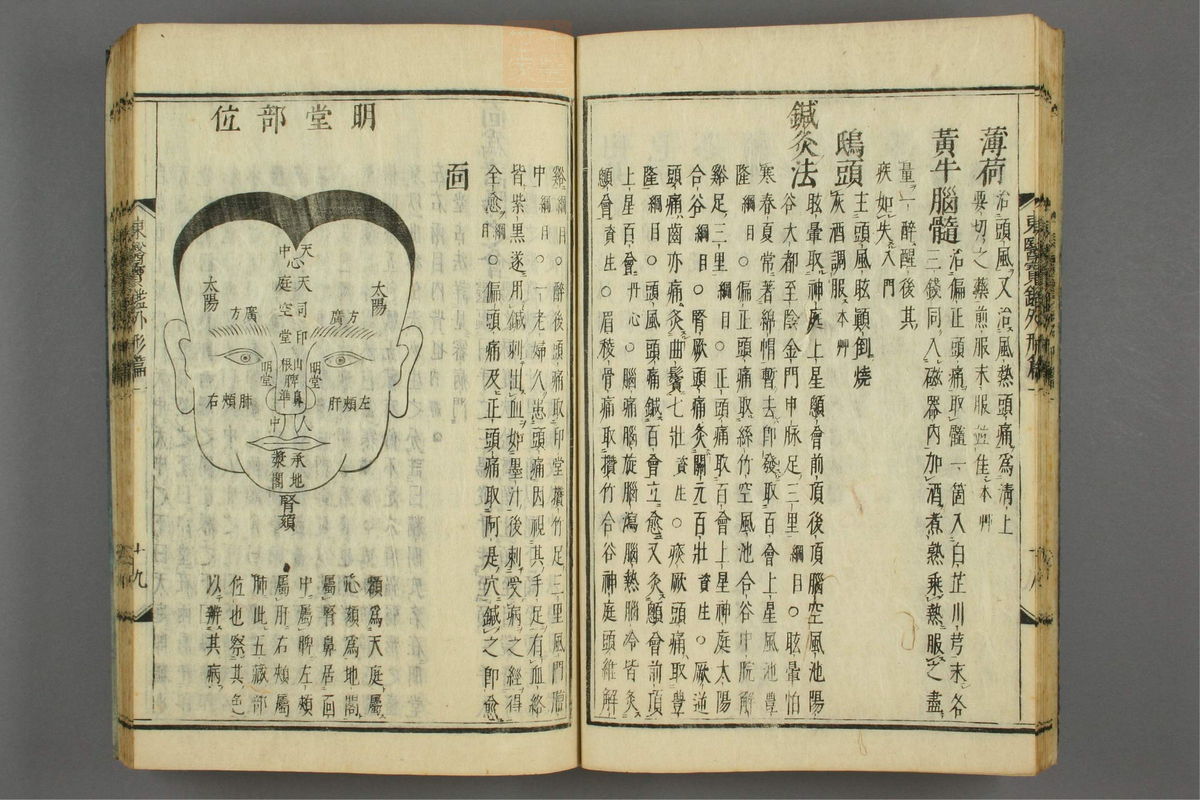 薄荷
治頭風又治風熱頭痛爲清上
要切之藥煎服末服並佳本艸
黃牛腦髓
治偏正頭痛取髓一箇入白芷川芎末各
三錢同入磁器內加酒煮熟乘熱服之盡
量一醉醒後其
疾如失入門
鴟頭
主頭風眩顚倒燒
灰酒調服本艸
鍼灸法
眩暈取神庭上星顖會前頂後頂腦空風池陽
谷大都至陰金門申脉足三里綱目○眩暈怕
寒春夏常著綿帽暫去卽發取百會上星風池豊
隆綱目○偏正頭痛取絲竹空風池合谷中脘解
谿足三里綱目○正頭痛取百會上星神庭太陽
合谷綱目○腎厥頭痛灸關元百壯資生○厥逆
頭痛齒亦痛灸曲鬢七壯資生○痰厥頭痛取豊
隆綱目○頭風頭痛鍼百會立愈又灸顖會前頂
上星百會丹心○腦痛腦旋腦瀉腦熱腦冷皆灸
顖會資生○眉稜骨痛取攢竹合谷神庭頭維解
東醫寶鑑外形篇一
谿綱目○醉後頭痛取印堂攢竹足三里風門膻
中綱目○一老婦久患頭痛因視其手足有血絡
皆紫黑遂用鍼刺出血如墨汁後刺受病之經得
全愈綱目○偏頭痛及正頭痛取阿是穴鍼之卽愈
面
明堂部位
天中
天庭
司空
印堂
心
太陽
太陽
方廣
方廣
山根
脾
鼻準
明堂
明堂
人中
左頰肝
右頰肺
承漿
地閣
腎頦
額爲天庭屬
心頦爲地閣
屬腎鼻居面
中屬脾左頰
屬肝右頰屬
肺此五藏部
位也察其色
以辨其病
東醫寶鑑外形篇一
十九